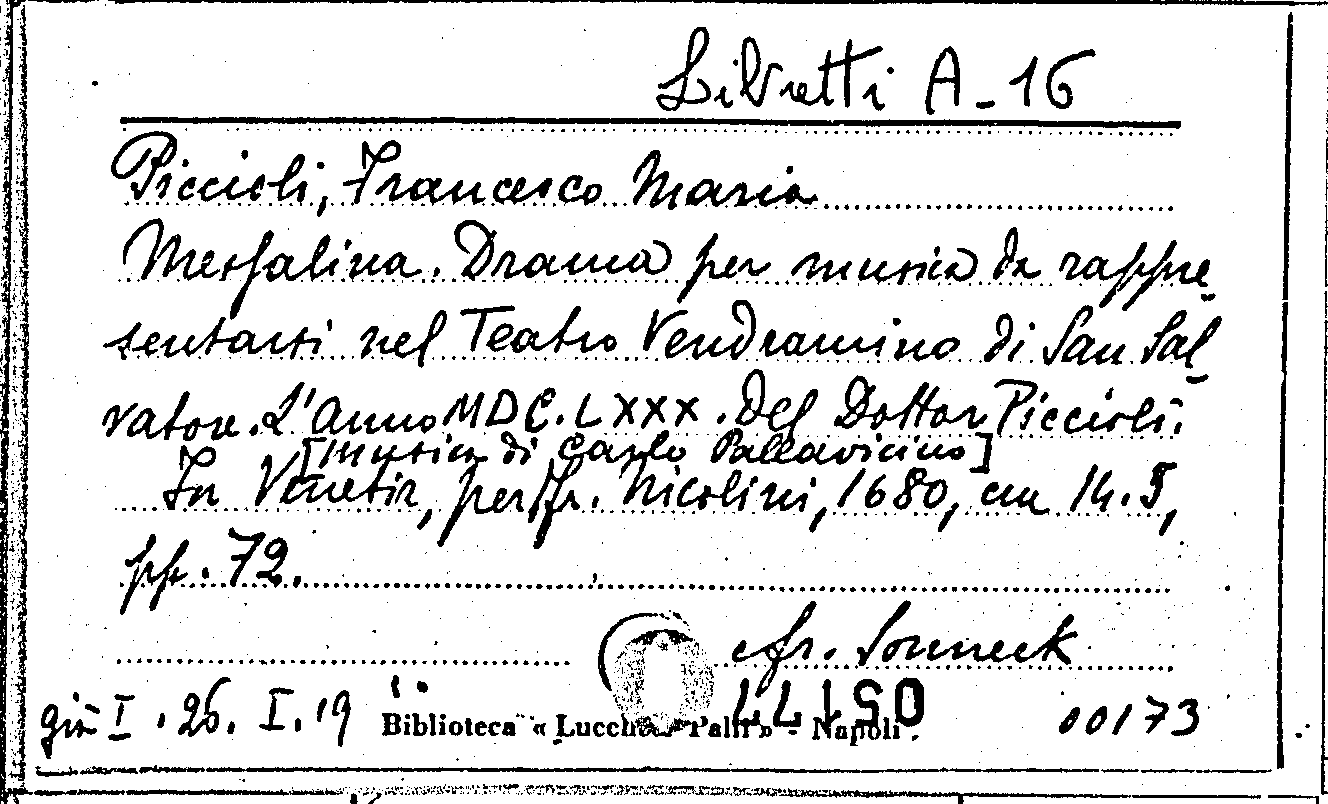 Libretti A-16
Piccioli, Francesco Maria
Messalina. Drama per musica da rappre-
sentarsi nel Teatro Vendramino di San Sal-
vatore. L'Anno MDC.LXXX. Del Dottor Piccioli.
[musica di Carlo Pallavicino]
In Venetia, per Fr. Nicolini, 1680, cm 14.5,
pp. 72.
cfr. Sonneck
già I. 26. I. 19
Biblioteca « Lucchesi Palli » - Napoli
00173